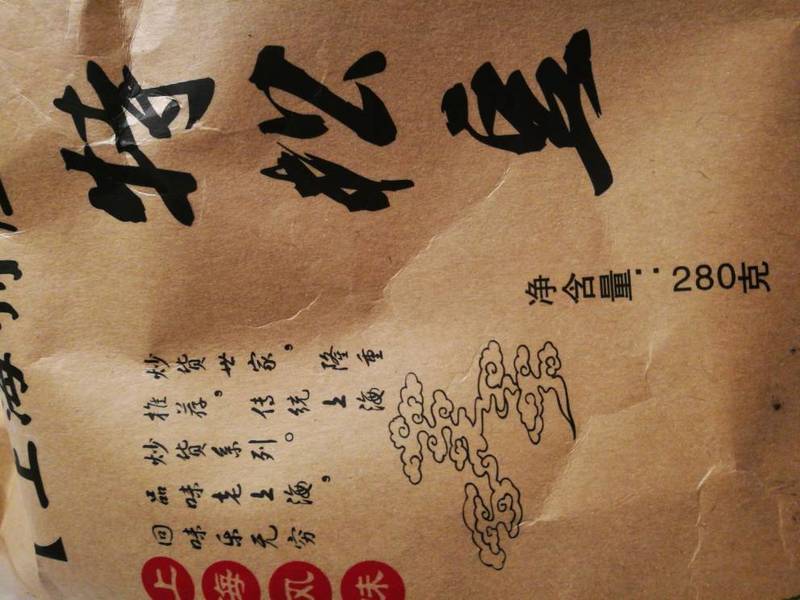 特松屋
净含量：280克
炒货世家，隆重
推荐，传统上海
炒货系列。
品味老上海，
回味乐无穷
上海风味
【上海